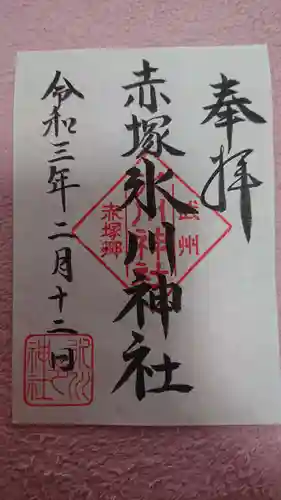 奉拝
赤塚氷川神社
令和三年二月十二日
武州
氷川神社
赤塚郷